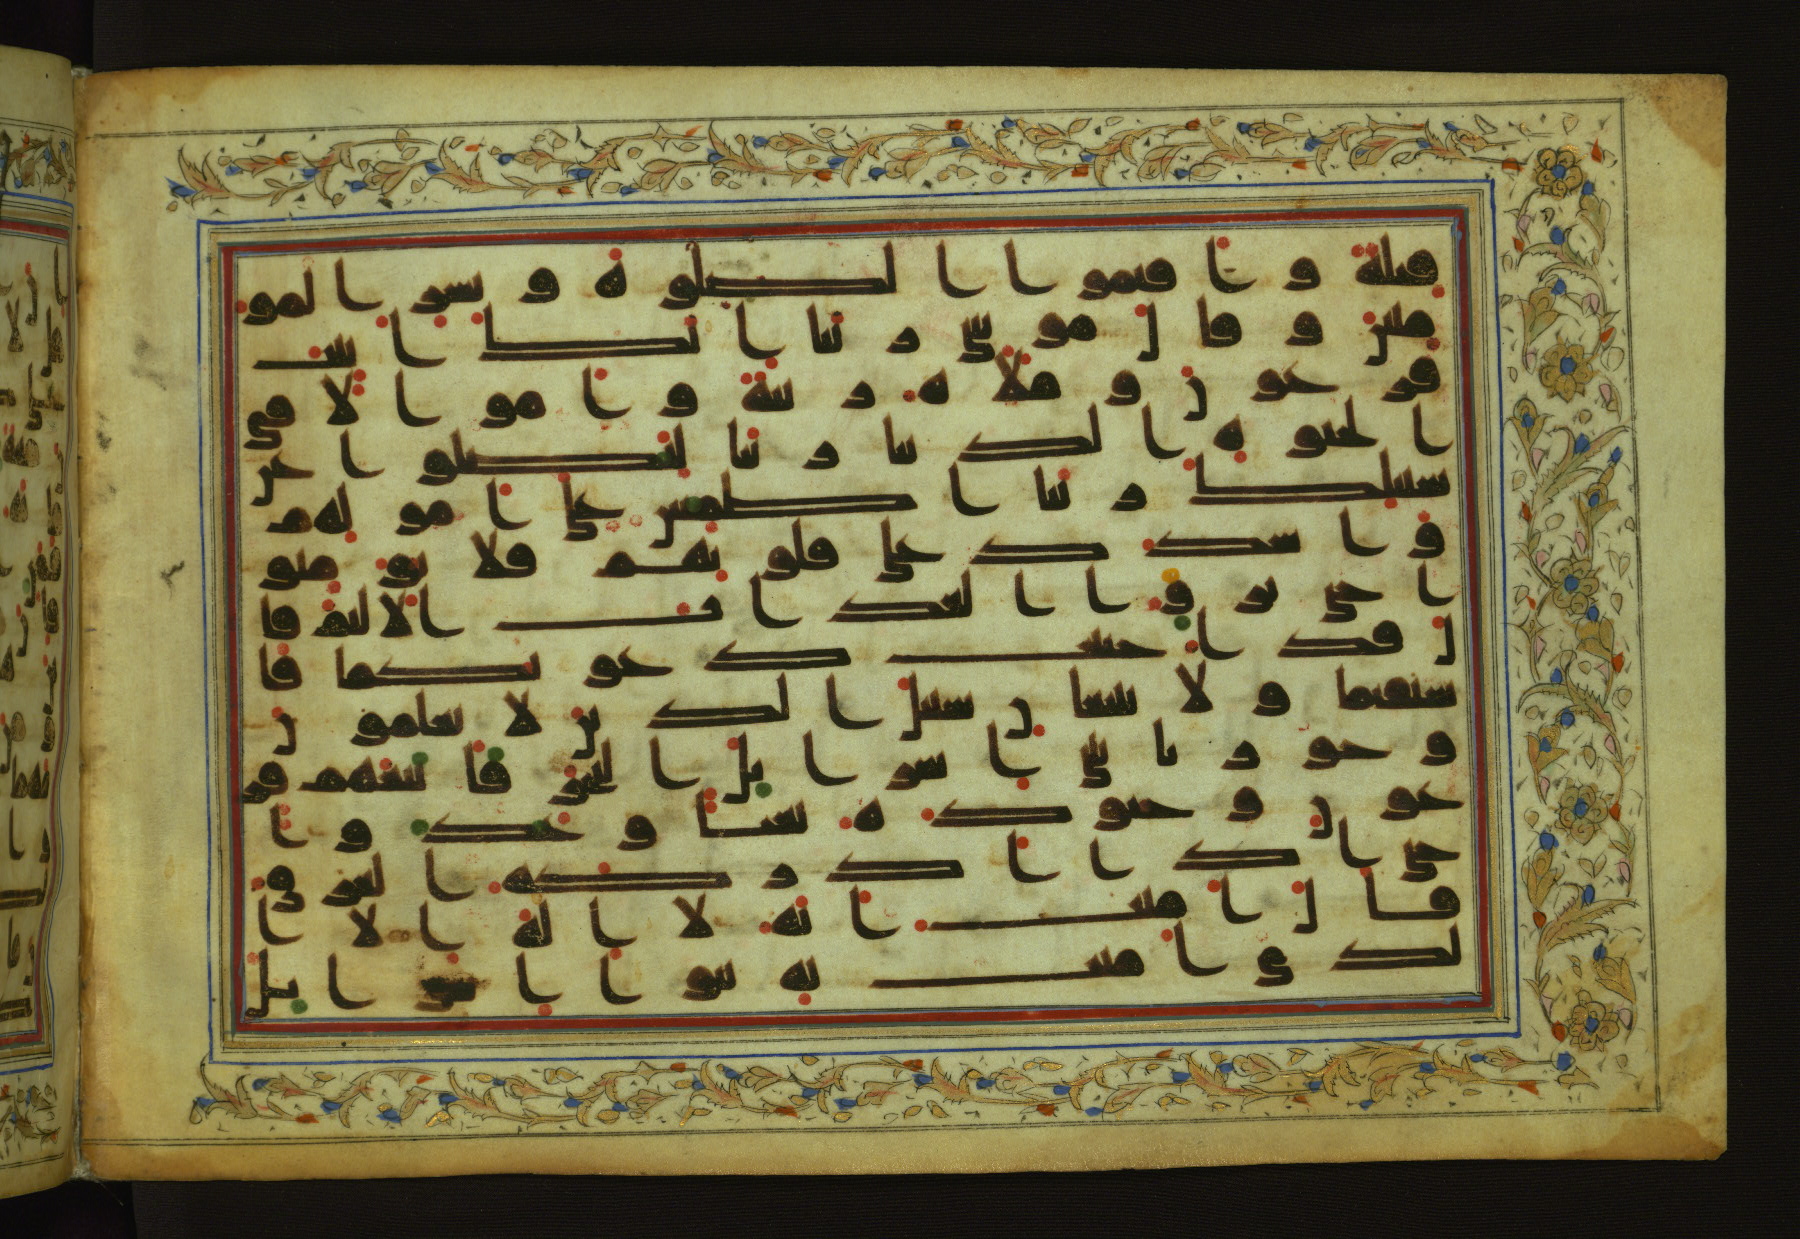 قبلة وا قيموا ا لصلوة و بشر ا لمو
منين و قا ل موسى ر بنا ا نك ا تيت
فر عو ن و ملا ه ز ينة و ا مو ا لا في
ا لحيو ة ا لد نيا ر بنا ليضلو ا عن
سبيلك ر بنا ا طمس على ا مو لهم
و ا شد د على قلو بهم فلا يو منو
ا حتى ير و ا ا لعذ ا ب ا لاليم قا
ل قد ا جيبت د عو تكما فا
ستقيما و لا تتبعا ن سبيل ا لذ ين لا يعلمو ن
و جو ز نا ببني ا سر ا يل ا لبحر فا تبعهم فر
عو ن و جنو د ه بغيا و عد و ا
حتى ا ذ ا ا د ر كه ا لغر ق
قا ل ا منت ا نه لا ا له ا لا ا
لذ ي ا منت به بنو ا ا سر ا يل